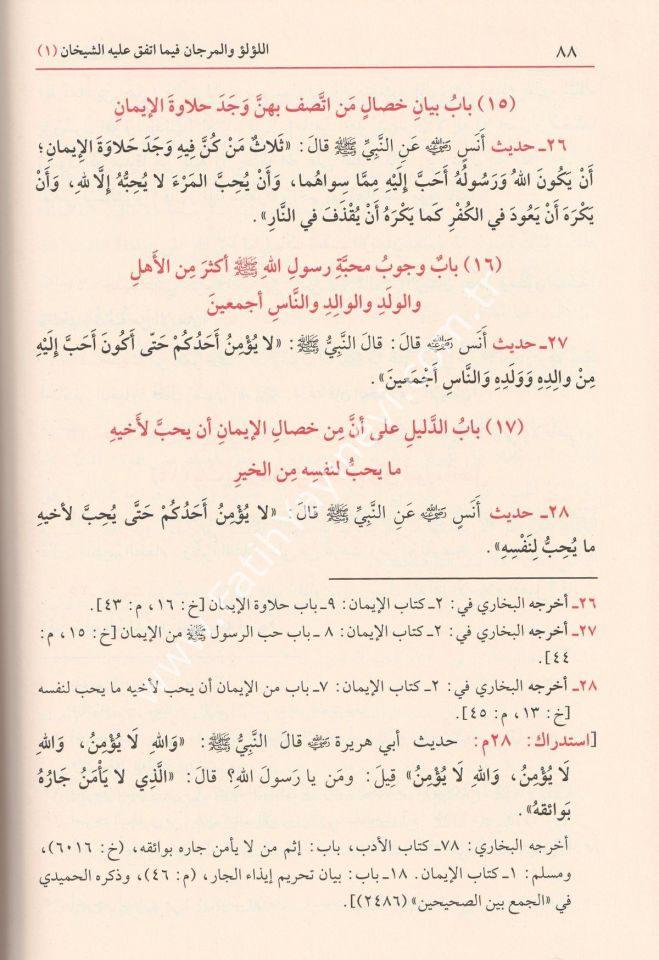 ٨٨ اللؤلؤ والمرجان فيما اتفق عليه الشيخان (١)
(١٥) بابُ بيانِ خصالٍ مَن اتَّصف بهنَّ وَجَدَ حلاوةَ الإيمانِ
٢٦ـ حديث أَنَسٍ رضي الله عنه عَنِ النَّبِيِّ ﷺ قالَ: «ثَلاثٌ مَنْ كُنَّ فِيهِ وَجَدَ حَلَاوَةَ الإِيمانِ؛
أَنْ يَكُونَ اللهُ وَرَسُولُهُ أَحَبَّ إِلَيْهِ مِمَّا سِواهُما، وَأَنْ يُحِبَّ المَرْءَ لا يُحِبُّهُ إِلَّا للهِ، وَأَنْ
يَكْرَهَ أَنْ يَعُودَ في الكُفْرِ كَما يَكْرَهُ أَنْ يُقْذَفَ في النَّارِ».
(١٦) بابُ وجوبُ محبَّةِ رسولِ اللهِ ﷺ أكثرَ مِن الأَهلِ
والولَدِ والوالِدِ والنَّاسِ أجمعينَ
٢٧ـ حديث أَنَسٍ رضي الله عنه قالَ: قالَ النَّبِيُّ ﷺ: «لا يُؤْمِنُ أَحَدُكُمْ حَتَّى أَكُونَ أَحَبَّ إِلَيْهِ
مِنْ والِدِهِ وَوَلَدِهِ وَالنَّاسِ أَجْمَعينَ».
(١٧) بابُ الدَّليلِ على أنَّ مِن خصالِ الإيمانِ أن يحبَّ لأَخيهِ
ما يحبُّ لنفسِه مِن الخيرِ
٢٨ـ حديث أَنَسٍ رضي الله عنه عَنِ النَّبِيِّ ﷺ قالَ: «لا يُؤْمِنُ أَحَدُكُمْ حَتَّى يُحِبَّ لأَخيهِ
ما يُحِبُّ لِنَفْسِهِ».
٢٦ـ أخرجه البخاري في: ٢ـ كتاب الإيمان: ٩ـ باب حلاوة الإيمان [خ: ١٦، م: ٤٣].
٢٧ـ أخرجه البخاري في: ٢ـ كتاب الإيمان: ٨ ـ باب حب الرسول ﷺ من الإيمان [خ: ١٥، م:
٤٤].
٢٨ـ أخرجه البخاري في: ٢ـ كتاب الإيمان: ٧ـ باب من الإيمان أن يحب لأخيه ما يحب لنفسه
[خ: ١٣، م: ٤٥].
[استدراك: ٢٨م: حديث أبي هريرة رضي الله عنه قالَ النَّبِيُّ ﷺ: «وَاللهِ لَا يُؤْمِنُ، وَاللهِ
لَا يُؤْمِنُ، وَاللهِ لَا يُؤْمِنُ» قِيلَ: ومَن يا رَسولَ اللهِ؟ قالَ: «الَّذِي لا يَأْمَنُ جَارُهُ
بَوائقهُ».
أخرجه البخاري: ٧٨ـ كتاب الأدب، باب: إثم من لا يأمن جاره بوائقه، (خ: ٦٠١٦)،
ومسلم: ١ـ كتاب الإيمان. ١٨ـ باب: بيان تحريم إيذاء الجار، (م: ٤٦)، وذكره الحميدي
في «الجمع بين الصحيحين» (٢٤٨٦)].
www.fatihyayinevi.com.tr